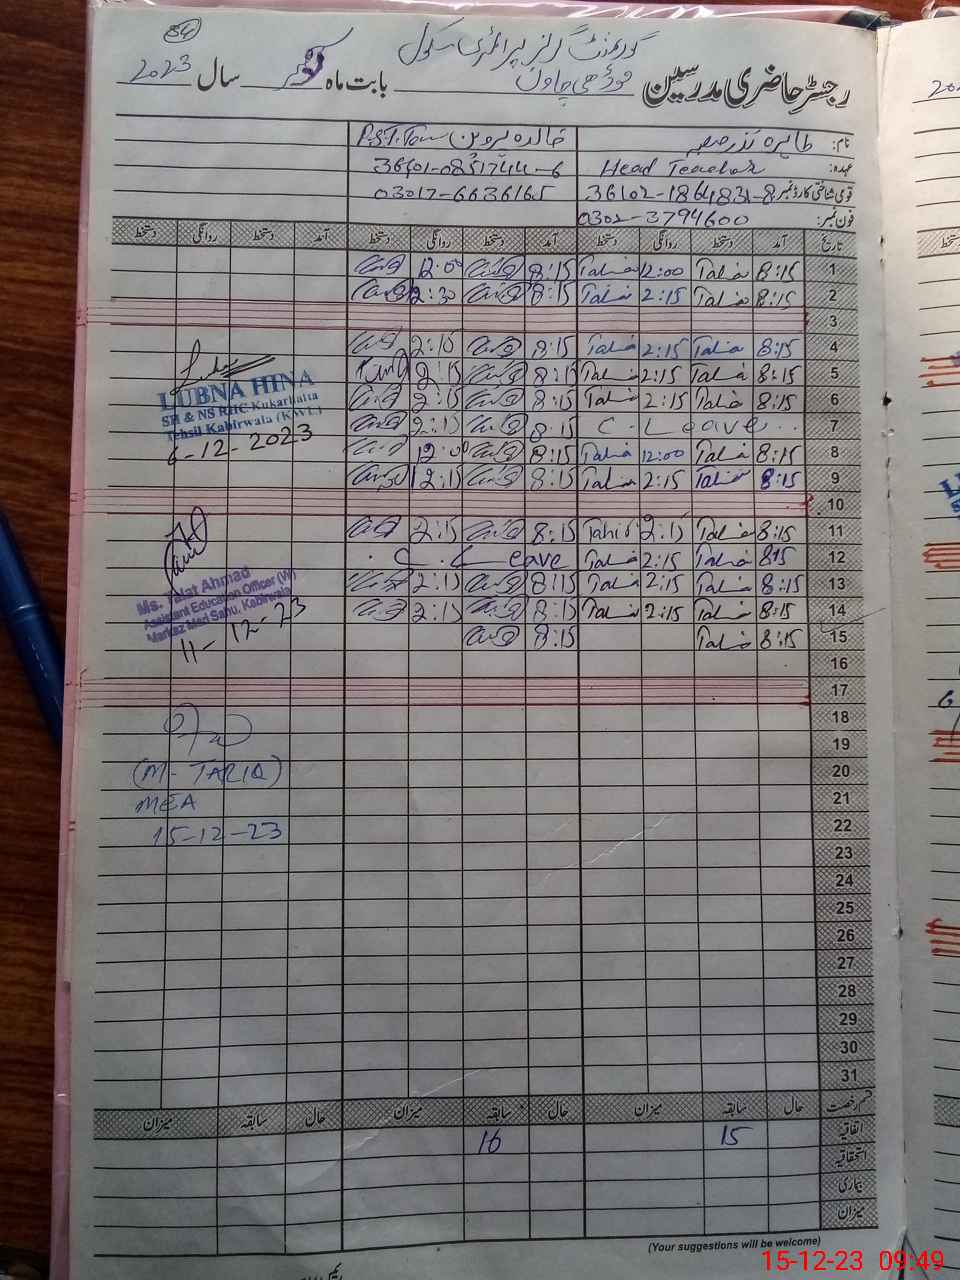 54
گورنمنٹ گرلز پرائمری سکول
رجسٹر حاضری مدرسین بابت ماہ سال 2023
نام: طاہرہ خالدہ پروین P.S.T.
عہدہ: Head Teacher 36601-0851744-6
قومی شناختی کارڈ نمبر: 36102-1864831-8 03017-6636165
فون نمبر: 0302-3794600
تاریخ آمد دستخط روانگی دستخط آمد دستخط روانگی دستخط آمد دستخط روانگی دستخط
1 8:15 Talia 12:00 Talia 8:15 12:00
2 8:15 Talia 2:15 Talia 8:15 2:30
3
4 8:15 Talia 2:15 Talia 8:15 2:10
5 8:15 Talia 2:15 Talia 8:15 2:15
6 8:15 Talia 2:15 Talia 8:15 2:15
7 C-Leave 8:15 2:15
8 8:15 Talia 12:00 Talia 8:15 12:00
9 8:15 Talia 2:15 Talia 8:15 12:15
10
11 8:15 Talia 2:15 8:15 2:15
12 8:15 Talia 2:15 Talia C. Leave
13 8:15 Talia 2:15 Talia 8:15 2:15
14 8:15 Talia 2:15 Talia 8:15 2:15
15 8:15 Talia 8:15
16
17
18
19
20
21
22
23
24
25
26
27
28
29
30
31
LUBNA HINA
SH & NS RHC Kukarhatta
Tehsil Kabirwala (KWL)
6-12-2023
Ms. Talat Ahmad
Assistant Education Officer (W)
Markaz Mari Sahu, Kabirwala
11-12-23
(M-TARIQ)
MEA
15-12-23
قسم رخصت حال سابقہ میزان حال سابقہ میزان حال سابقہ میزان
اتفاقیہ 15 16
استحقاقیہ
بیماری
میزان
(Your suggestions will be welcome)
15-12-23 09:49